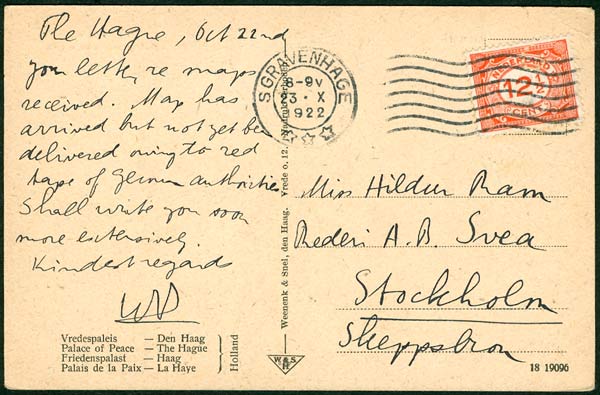 The Hague, Oct 22nd
your letter re maps
received. Map has
arrived but not yet been
delivered owing to red
tape of German authorities
Shall write you soon
more extensively.
Kindest regards
Vredespaleis — Den Haag
Palace of Peace — The Hague
Friedenspalast — Haag
Palais de la Paix — La Haye
Holland
Weenenk & Snel, den Haag. Vrede o. 12.
W&S
H
'SGRAVENHAGE
8-9V
23·X
1922
NEDERLAND
12½
CENT
Miss Hildur Ram
Rederi A.B. Svea
Stockholm
Skeppsbron
18 19096